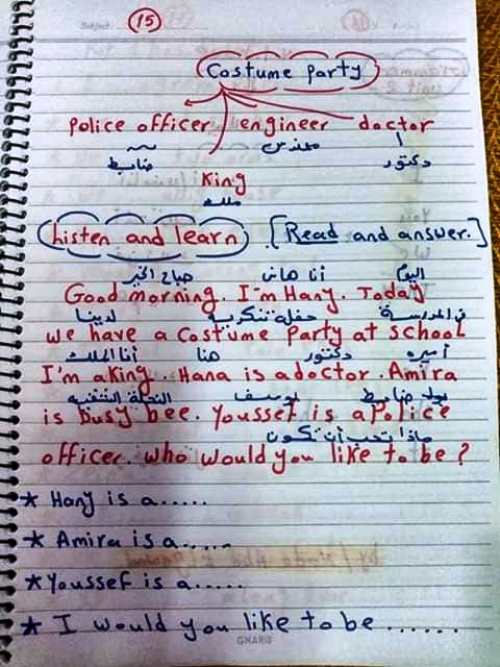 Subject:
15
Costume party
police officer engineer doctor
ضابط مهندس دكتور
King
ملك
Listen and learn [Read and answer.]
صباح الخير أنا هانى اليوم
Good morning. I'm Hany. Today
لدينا حفلة تنكرية فى المدرسة
we have a costume party at school
أنا الملك هنا دكتور أميره
I'm a king. Hana is a doctor. Amira
يوسف ضابط
is busy bee. Youssef is a police
ماذا تحب أن تكون
officer. who would you like to be?
* Hany is a.....
* Amira is a.....
* Youssef is a.....
* I would you like to be ......